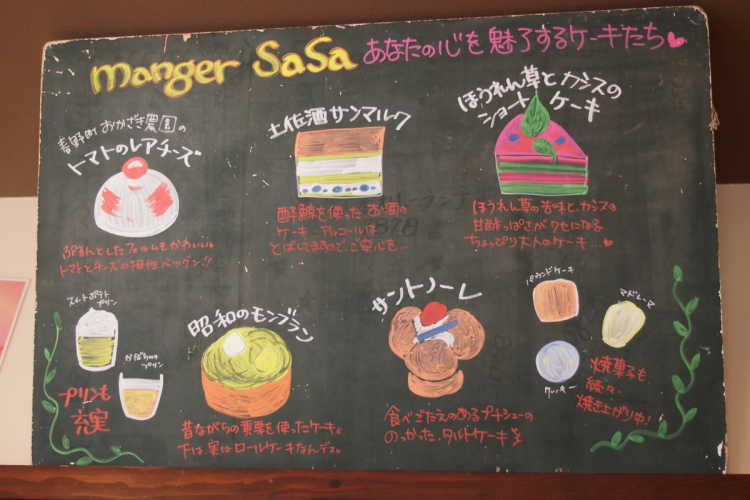 manger SaSa あなたの心を魅了するケーキたち
春野町 おかざき農園の
トマトのレアチーズ
ぷるんとしたフォルムもかわいい。
トマトとチーズの相性バツグン!!
土佐酒サンマルク
酔鯨を使ったお酒の
ケーキ。アルコールは
とばしてますので、ご安心を…
ほうれん草とカシスの
ショートケーキ
ほうれん草の苦味とカシスの
甘酸っぱさがクセになる
ちょっぴり大人のケーキ…
スイートポテト
プリン
かぼちゃの
プリン
プリンも
充実
昭和のモンブラン
昔ながらの栗を使ったケーキ。
下は、実はロールケーキなんデス。
サントノーレ
食べごたえのあるプチシューの
のっかった、タルトケーキ
パウンドケーキ
マドレーヌ
クッキー
焼菓子も
続々、
焼き上がり中!